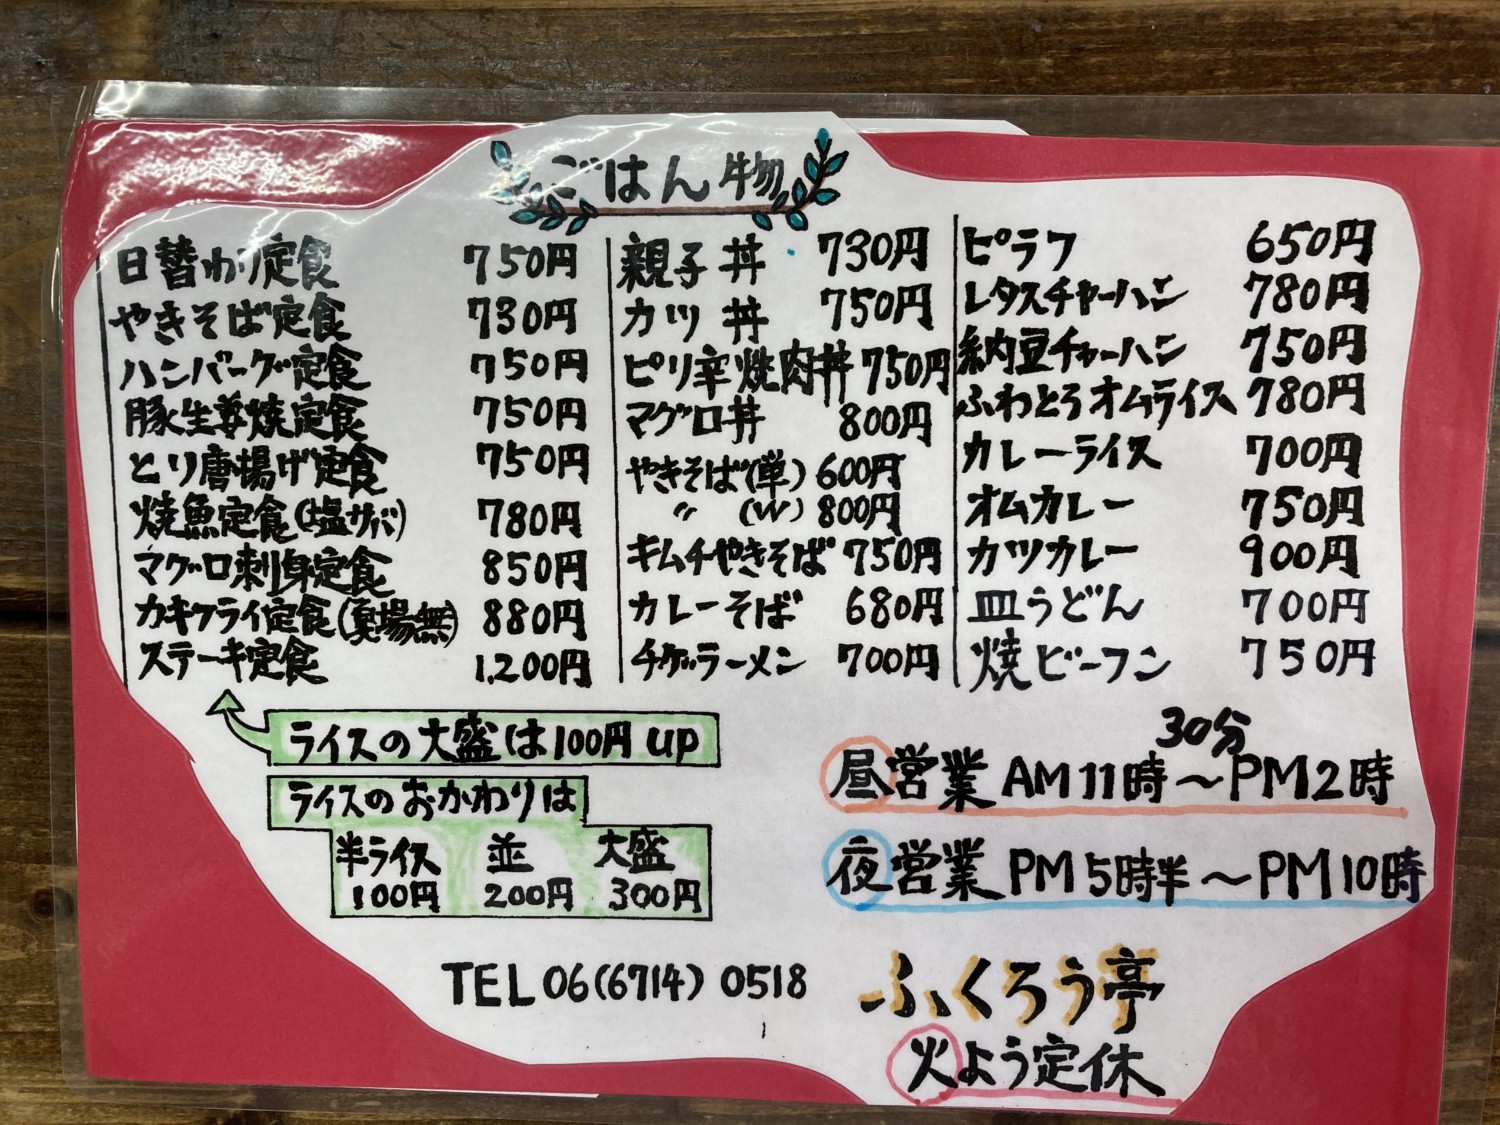 ごはん物
日替わり定食 750円
やきそば定食 730円
ハンバーグ定食 750円
豚生姜焼定食 750円
とり唐揚げ定食 750円
焼魚定食(塩サバ) 780円
マグロ刺身定食 850円
カキフライ定食(夏場無) 880円
ステーキ定食 1,200円
親子丼 730円
カツ丼 750円
ピリ辛焼肉丼 750円
マグロ丼 800円
やきそば(単) 600円
〃 (W) 800円
キムチやきそば 750円
カレーそば 680円
チゲラーメン 700円
ピラフ 650円
レタスチャーハン 780円
納豆チャーハン 750円
ふわとろオムライス 780円
カレーライス 700円
オムカレー 750円
カツカレー 900円
皿うどん 700円
焼ビーフン 750円
ライスの大盛は100円up
ライスのおかわりは
半ライス 並 大盛
100円 200円 300円
30分
昼営業 AM11時〜PM2時
夜営業 PM5時半〜PM10時
TEL 06(6714)0518
ふくろう亭
火よう定休